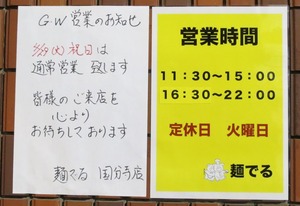 GW営業のお知せ
5/5(火)祝日は
通常営業 致します
皆様のご来店を
心より
お待ちしております
麺でる 国分寺店
営業時間
11:30~15:00
16:30~22:00
定休日 火曜日
麺でる